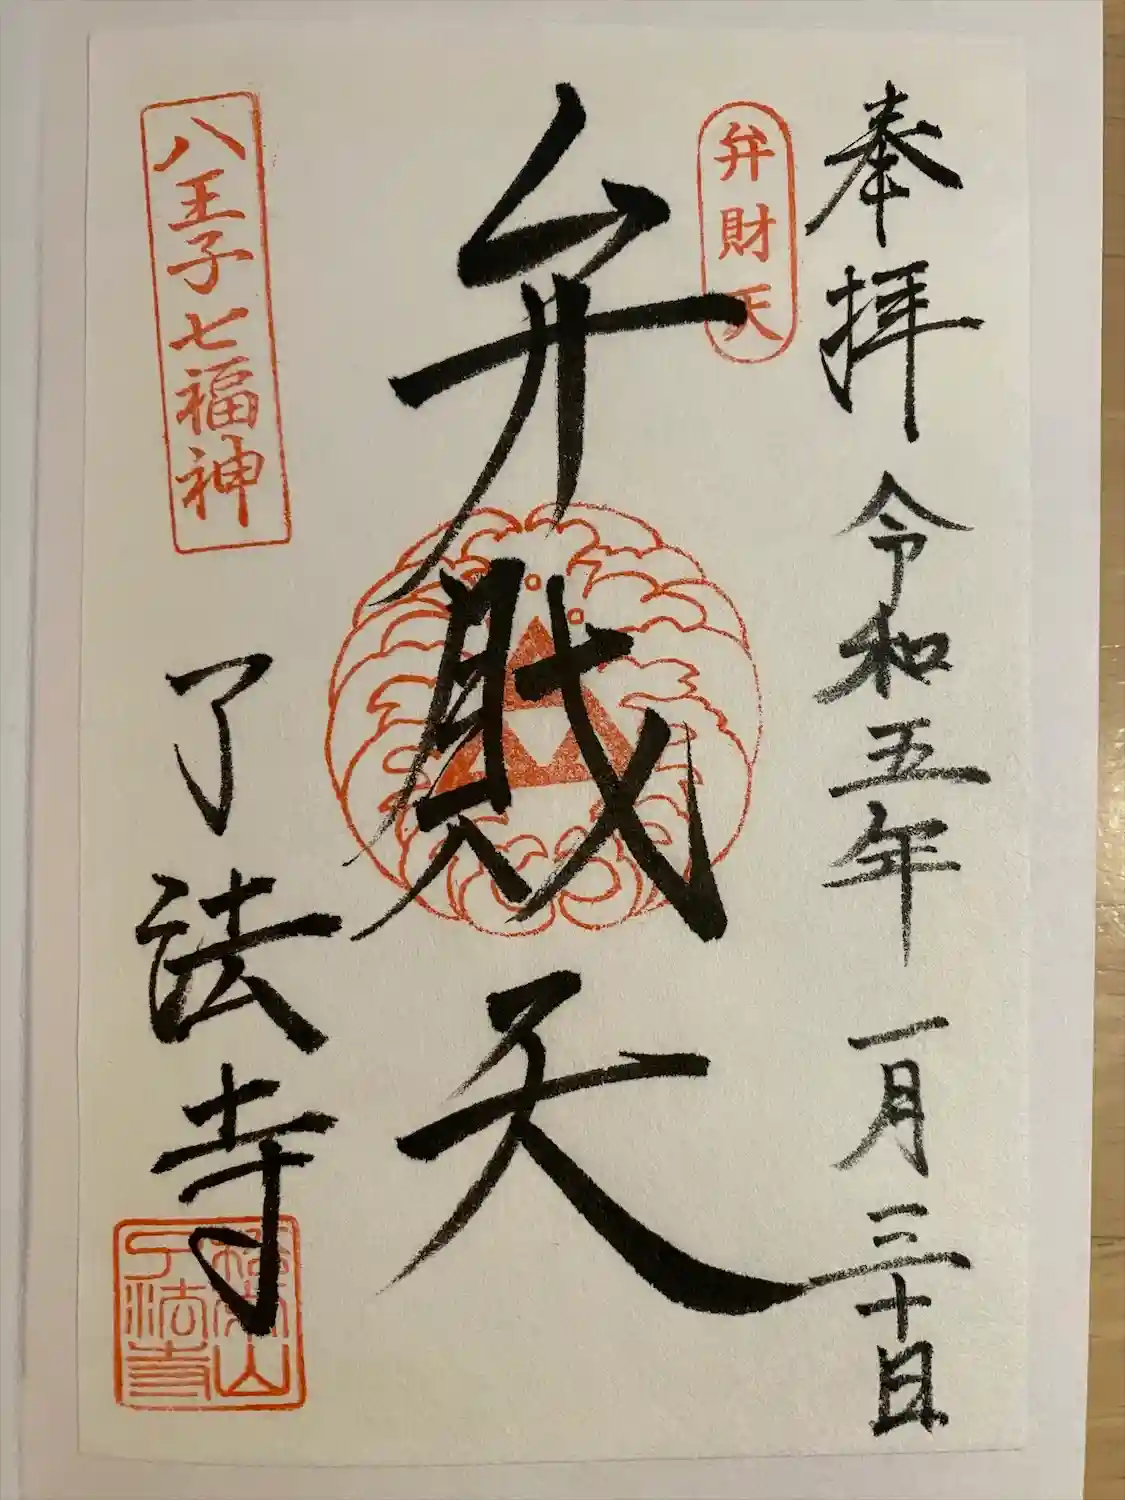 奉拝 令和五年 一月三十日
弁財天
弁財天
八王子七福神
了法寺
松栄山
了法寺